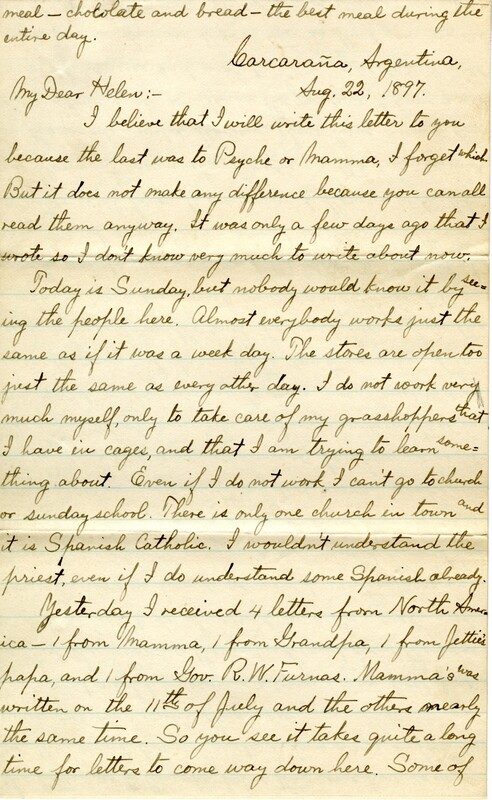 meal – chocolate and bread – the best meal during the
entire day.
Carcaraña, Argentina,
My Dear Helen:- Aug. 22, 1897.
I believe that I will write this letter to you
because the last was to Psyche or Mamma, I forget which.
But it does not make any difference because you can all
read them anyway. It was only a few days ago that I
wrote so I don't know very much to write about now.
Today is Sunday, but nobody would know it by see=
ing the people here. Almost everybody works just the
same as if it was a week day. The stores are open too
just the same as every other day. I do not work very
much myself, only to take care of my grasshoppers that
I have in cages, and that I am trying to learn some=
thing about. Even if I do not work I can't go to church
or sunday school. There is only one church in town and
it is Spanish Catholic. I wouldn't understand the
priest, even if I do understand some Spanish already.
Yesterday I received 4 letters from North Amer-
ica – 1 from Mamma, 1 from Grandpa, 1 from Jettie's
papa, and 1 from Gov. R. W. Furnas. Mamma's was
written on the 11th of July and the others nearly
the same time. So you see it takes quite a long
time for letters to come way down here. Some of